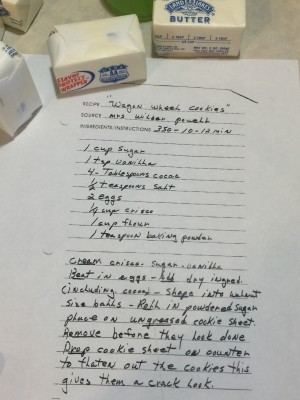 LAND O LAKES
BUTTER
FLAVOR
PROTECT
WRAPPER
RECIPE "Wagon Wheel Cookies"
SOURCE Mrs Wilson Powell
INGREDIENTS/INSTRUCTIONS 350-10-12 min
1 cup sugar
1 tsp vanilla
4-Tablespoons cocoa
1/2 teaspoons salt
2 eggs
1/4 cup crisco
1 cup flour
1 teaspoon baking powder
Cream crisco-sugar-vanilla
Beat in eggs-Add dry ingred.
(including cocoa) - Shape into walnut
size balls - Roll in powdered sugar
place on ungreased cookie sheet.
Remove before they look done
Drop cookie sheet on counter
to flaten out the cookies this
gives them a crack look.